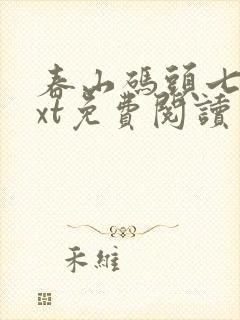 春山碼頭七
xt免費閱讀
禾維